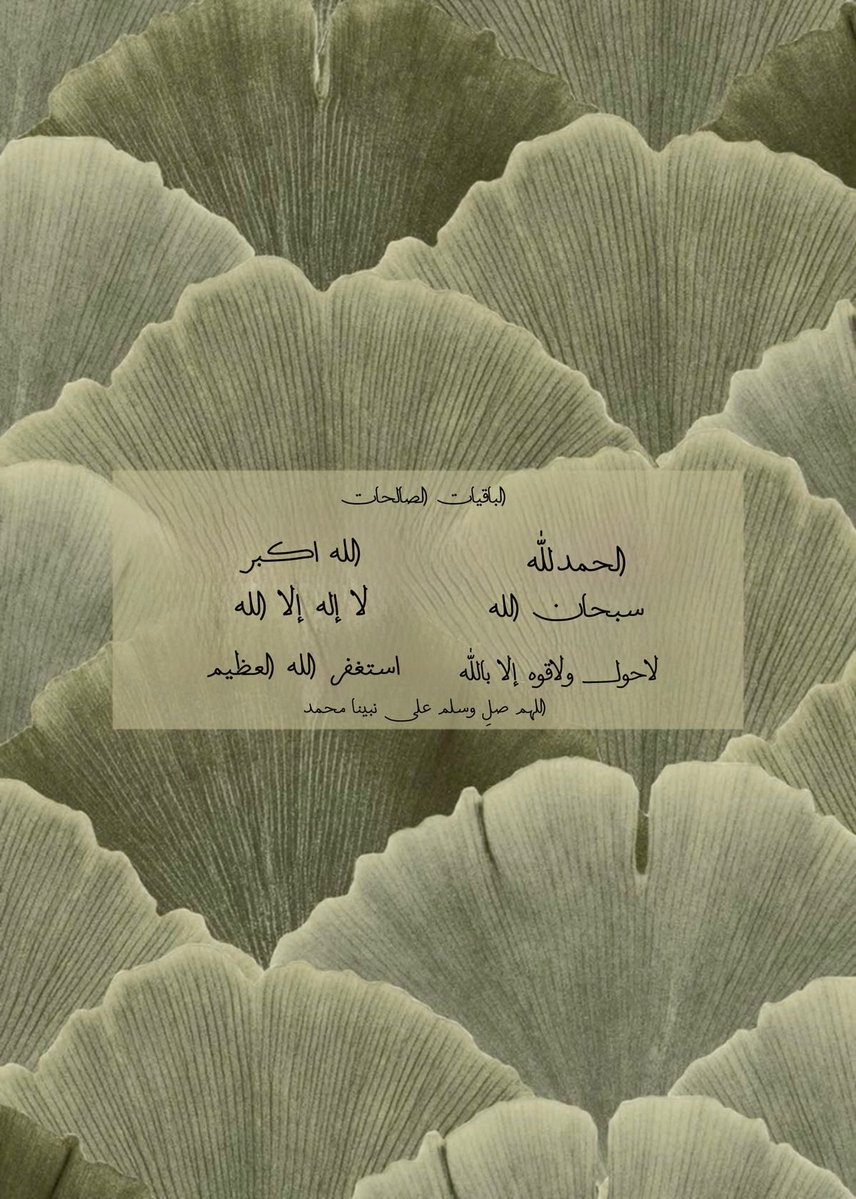 الباقيات الصالحات
الحمدلله
الله اكبر
سبحان الله
لا إله إلا الله
لاحول ولاقوه إلا بالله
استغفر الله العظيم
اللهم صلِ وسلم على نبينا محمد